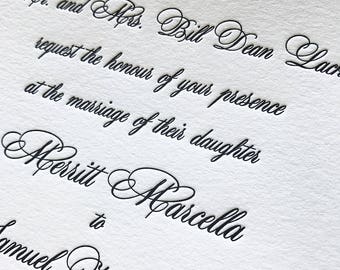 and Mrs. Bill Dean
request the honour of your presence
at the marriage of their daughter
Merritt Marcella
to
Samuel